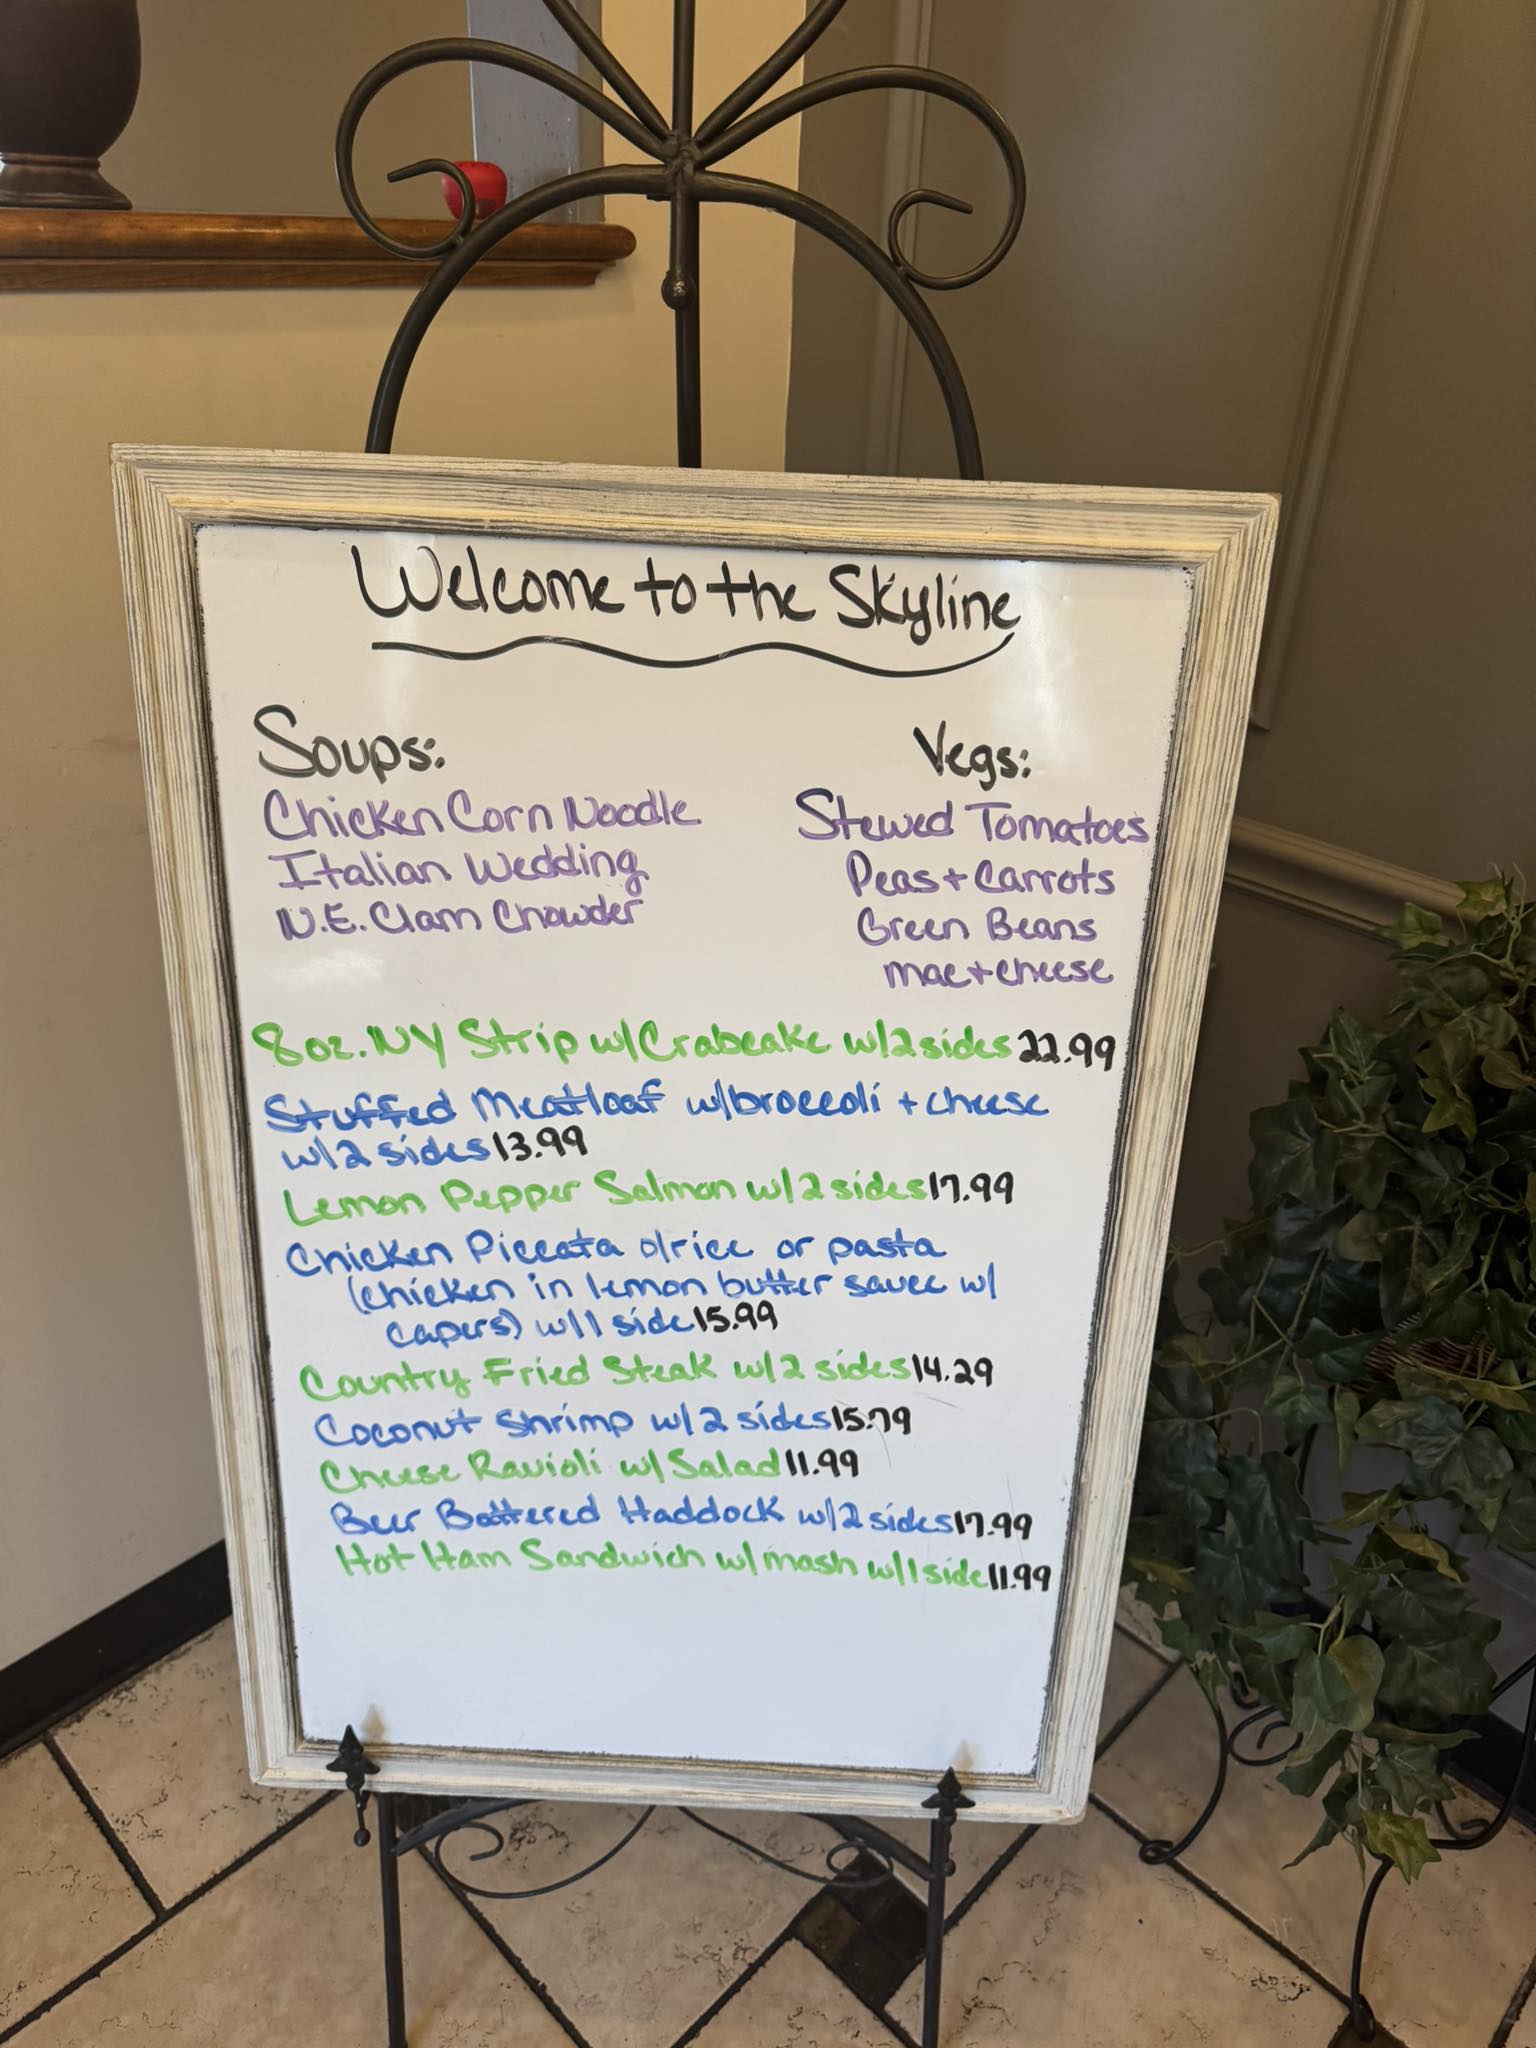 Welcome to the Skyline
Soups:
Chicken Corn Noodle
Italian Wedding
N.E. Clam Chowder
Vegs:
Stewed Tomatoes
Peas + Carrots
Green Beans
mac + cheese
8oz. NY Strip w/ Crabcake w/ 2 sides 22.99
Stuffed Meatloaf w/ broccoli + cheese
w/ 2 sides 13.99
Lemon Pepper Salmon w/ 2 sides 17.99
Chicken Piccata o/rice or pasta
(chicken in lemon butter sauce w/
capers) w/ 1 side 15.99
Country Fried Steak w/ 2 sides 14.29
Coconut Shrimp w/ 2 sides 15.79
Cheese Ravioli w/ Salad 11.99
Beer Battered Haddock w/ 2 sides 17.99
Hot Ham Sandwich w/ mash w/ 1 side 11.99